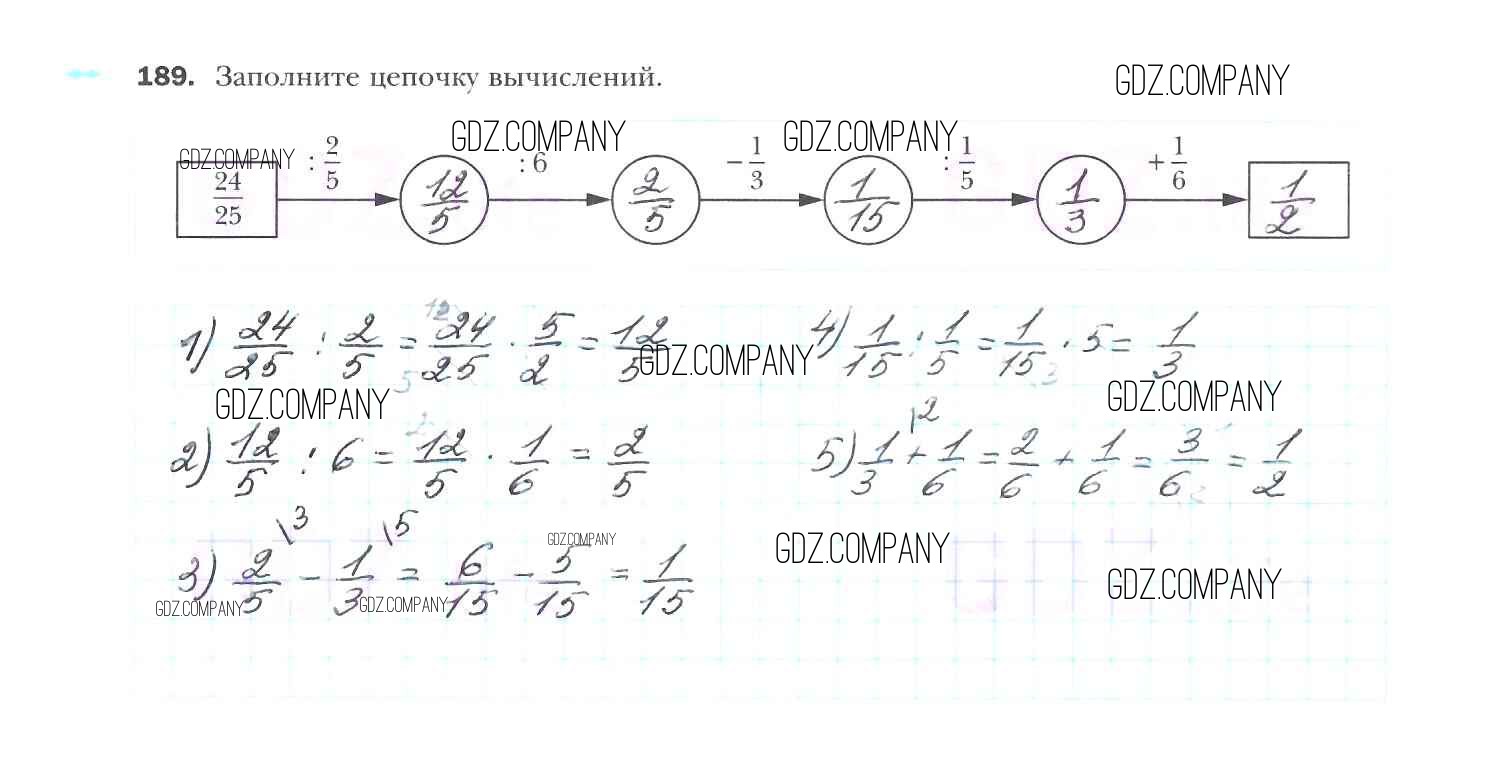 189. Заполните цепочку вычислений.
GDZ.COMPANY
GDZ.COMPANY GDZ.COMPANY GDZ.COMPANY
24/25 : 2/5 12/5 : 6 2/5 − 1/3 1/15 : 1/5 1/3 + 1/6 1/2
1) 24/25 : 2/5 = 24/25 · 5/2 = 12/5
12
5
GDZ.COMPANY
4) 1/15 : 1/5 = 1/15 · 5 = 1/3
3
GDZ.COMPANY GDZ.COMPANY
2) 12/5 : 6 = 12/5 · 1/6 = 2/5
2
5) 1/3 \2 + 1/6 = 2/6 + 1/6 = 3/6 = 1/2
2
3) 2/5 \3 − 1/3 \5 = 6/15 − 5/15 = 1/15
GDZ.COMPANY
GDZ.COMPANY GDZ.COMPANY
GDZ.COMPANY
GDZ.COMPANY